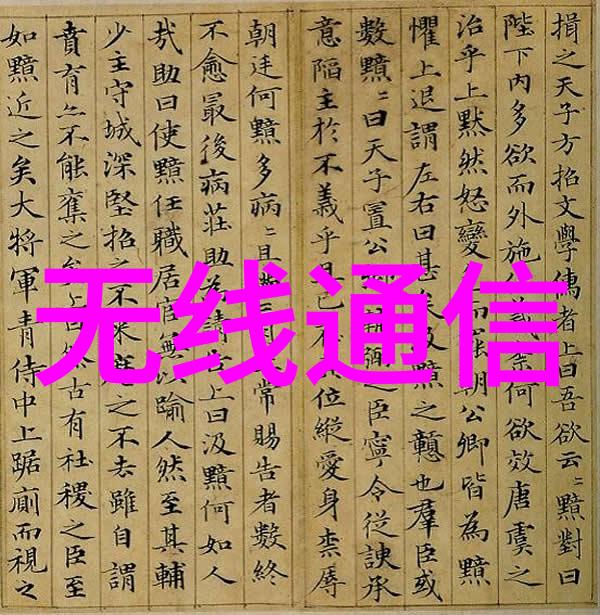 揖之天子方招文學儒者上曰吾欲云〻黯對曰
陛下內多欲而外施仁義奈何欲效唐虞之
治乎上默然怒變而罷朝公卿皆為黯
懼上退謂左右曰甚矣汲黯之戇也羣臣或
數黯〻曰天子置公輔弼之臣寧令從諛承
意陷主於不義乎且已在位縱愛身柰辱
朝廷何黯多病〻且滿三月常賜告者數終
不愈最後病莊助為請告上曰汲黯何如人
哉助曰使黯任職居官無以踰人然至其輔
少主守城深堅招之不來麾之不去雖自謂
賁育亦不能奪之矣上曰然古有社稷之臣至
如黯近之矣大將軍青侍中上踞廁而視之
无线通信